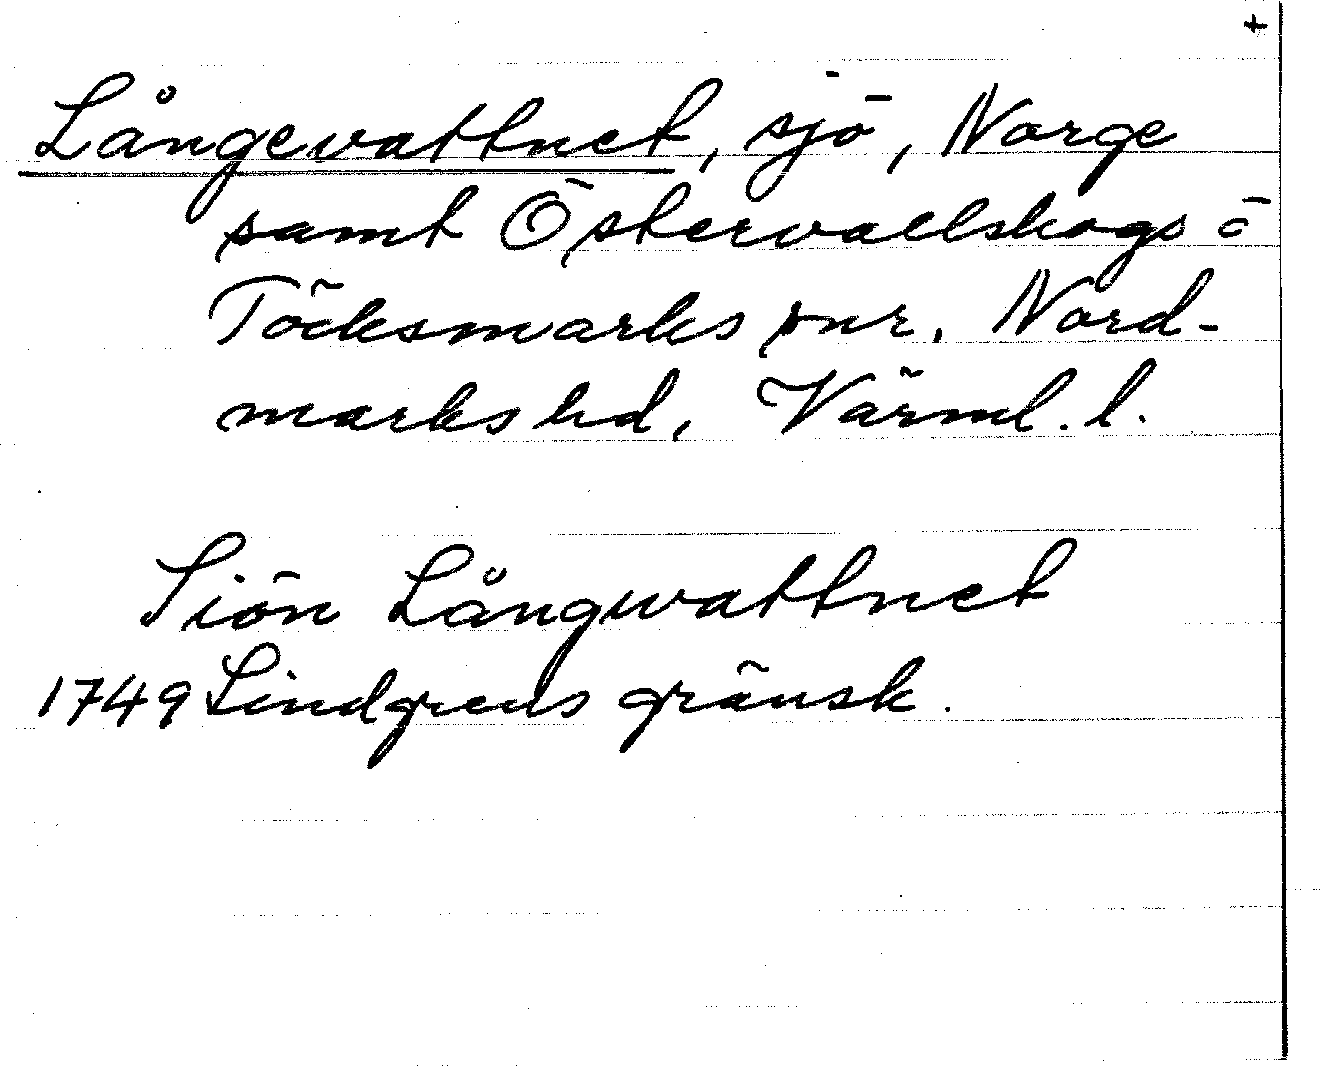 +
Långevattnet, sjö, Norge
samt Östervallskogs o
Töcksmarks snr, Nord-
marks hd, Värml. l.
Siön Långwattnet
1749 Lindgrens gränsk.